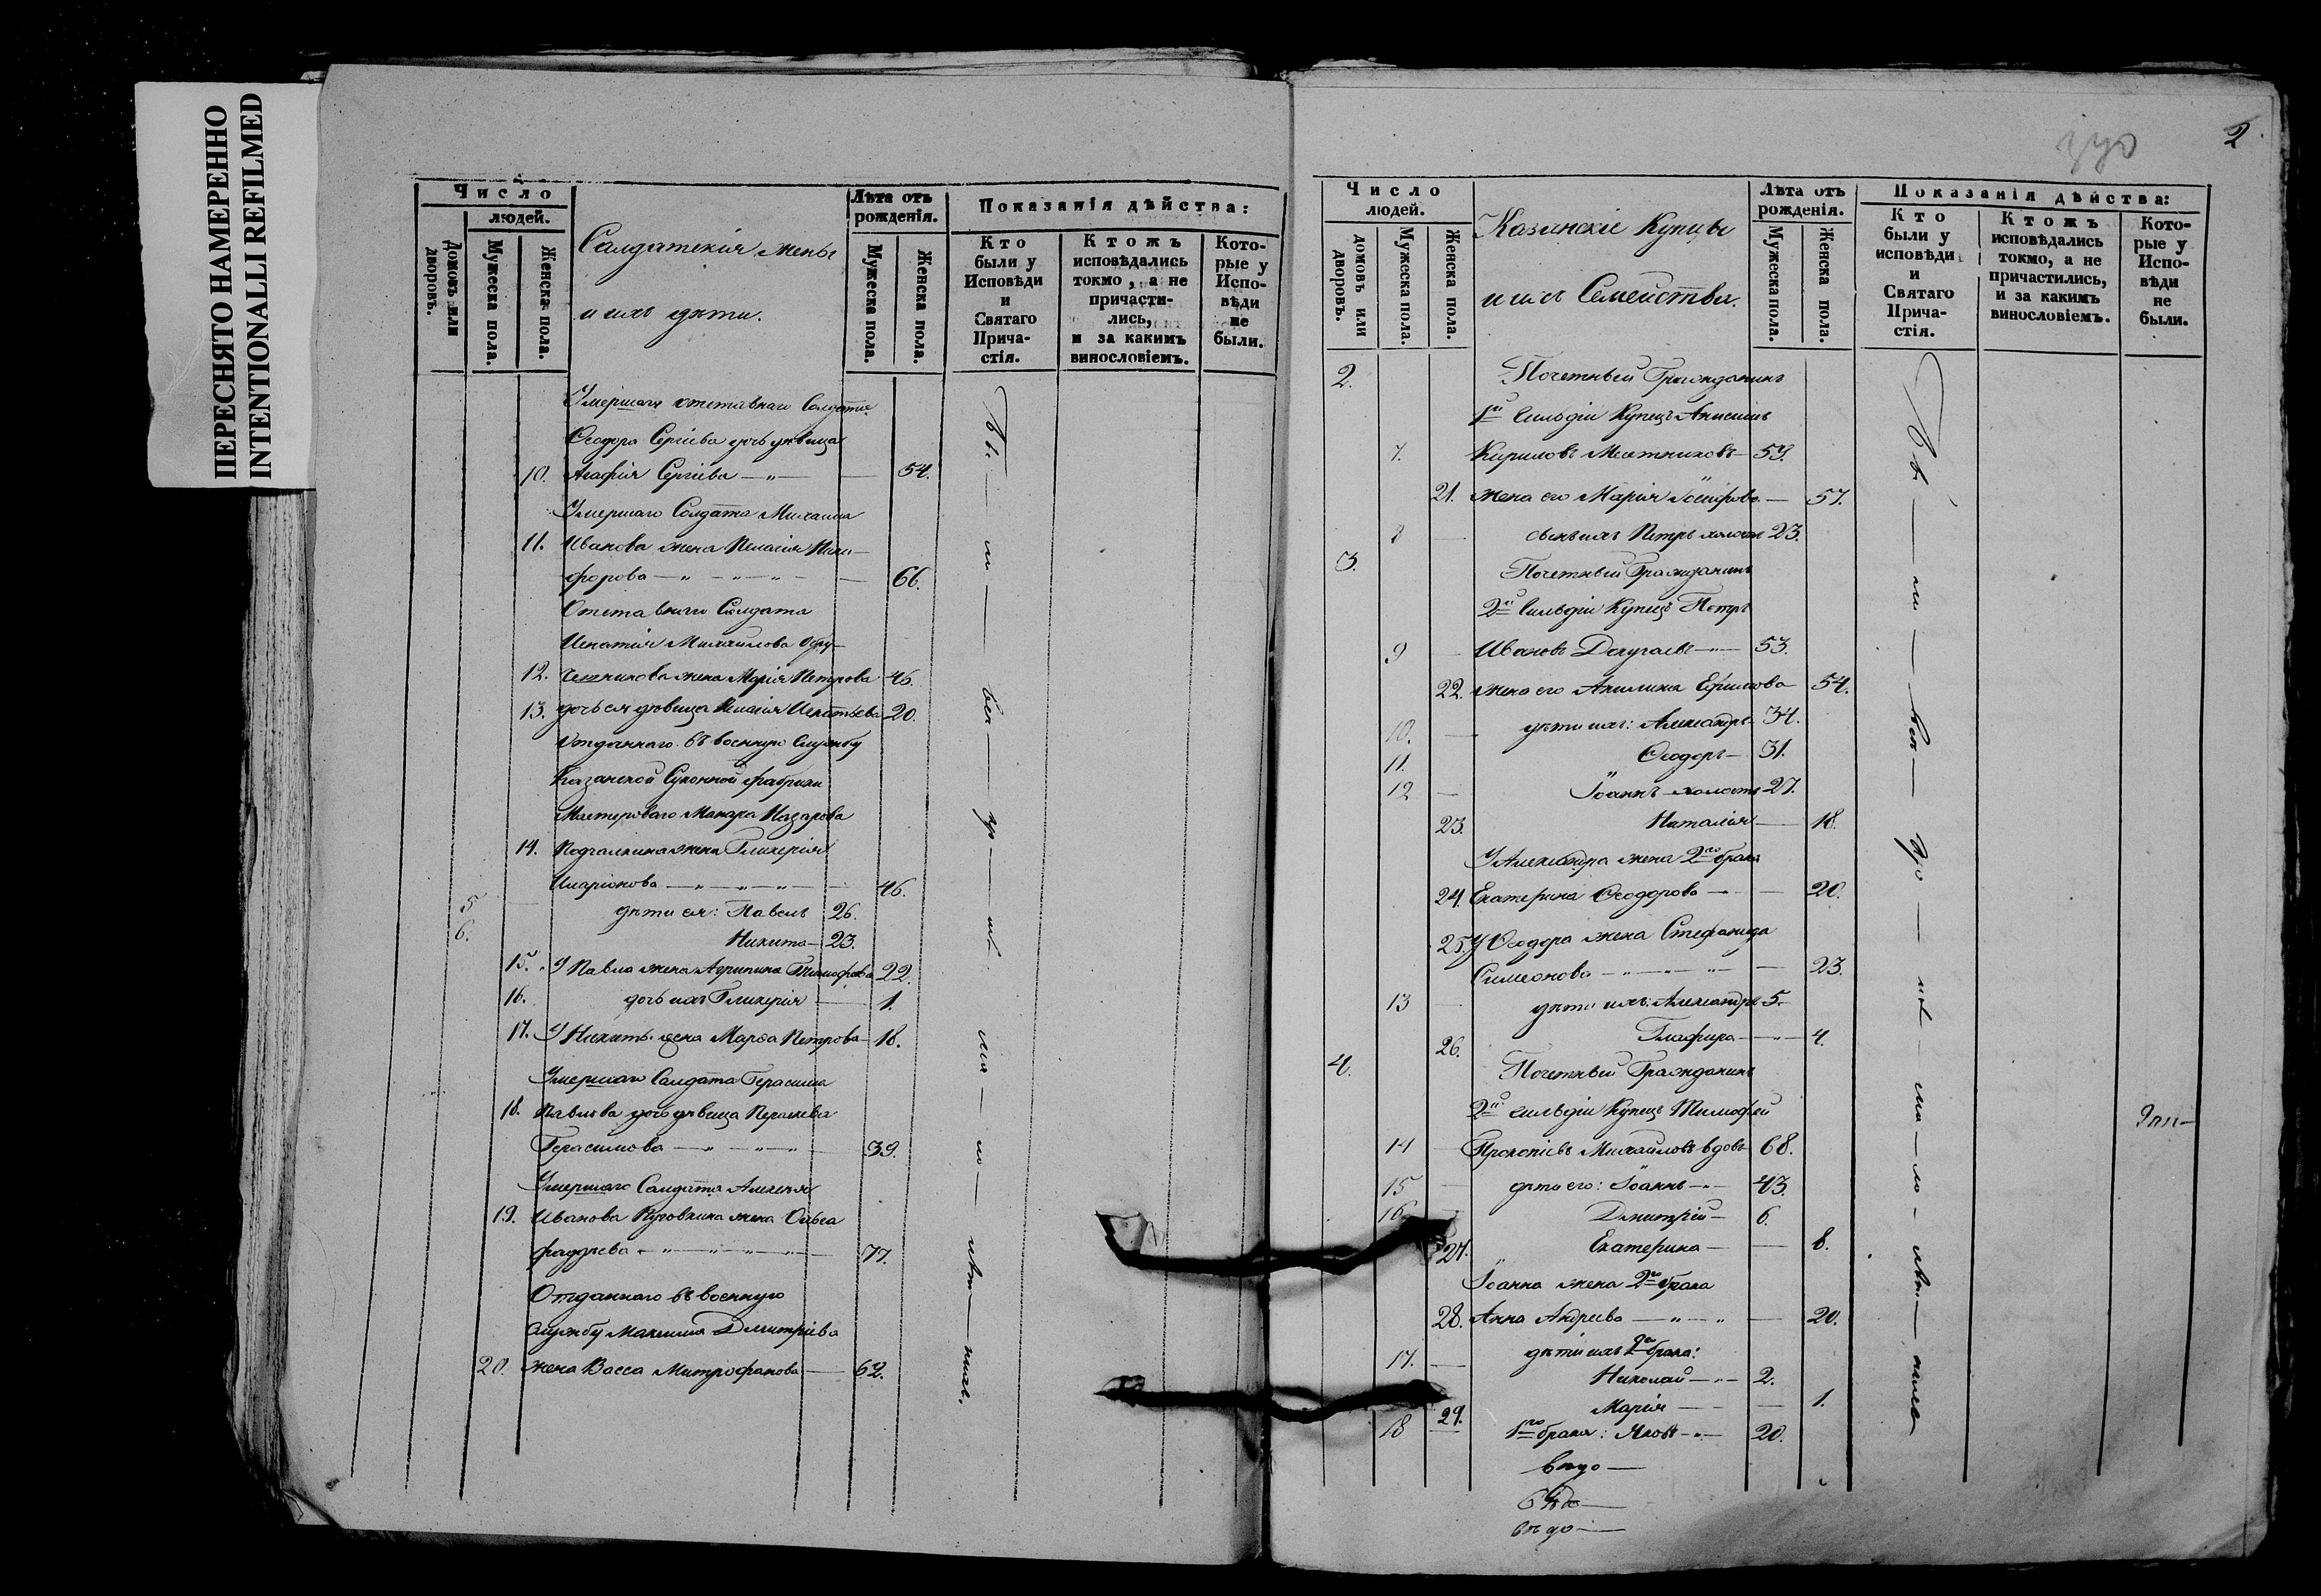 ПЕРЕСНЯТО НАМЕРЕННО
INTENTIONALLI REFILMED
Число
людей.
Домовъ или дворовъ.
Мужеска пола.
Женска пола.
Салдатскія жены
и ихъ дѣти.
Лѣта отъ рожденія.
Мужеска пола.
Женска пола.
Показанія дѣйства:
Кто были у Исповѣди и Святаго Прича-стія.
Ктожъ исповѣдались токмо, а не причасти-лись, и за какимъ винословіемъ.
Кото-рые у Испо-вѣди не были.
Умершаго отставнаго Солдата
Ѳеодора Сергіева дочь дѣвица
10. Агафія Сергіева — 54.
Умершаго Солдата Михаила
11. Иванова жена Пелагія Ники-
форова — 66.
Отставнаго Солдата
Игнатія Михайлова
12. жена Марія Петрова 46.
13. дочь ея дѣвица Пелагія Игнатьева 20.
Отданнаго въ военную службу
Казанской Суконной фабрики
Мастероваго Макара Назарова
14. жена Гликерія
Иларіонова — 46.
5 дѣти ея: Павелъ 26.
6. Никита — 23.
15. У Павла жена Агрипина Тимофеева 22.
16. дочь ихъ Гликерія — 1.
17. У Никиты жена Марѳа Петрова — 18.
Умершаго Салдата Герасима
18. Павлова дочь дѣвица Параскева
Герасимова — 39.
Умершаго Салдата Алексѣя
19. Иванова жена Ольга
Фаддѣева — 77.
Отданнаго въ военную
службу Максима Дмитріева
20. жена Васса Митрофанова — 62.
2
Число
людей.
домовъ или дворовъ.
Мужеска пола.
Женска пола.
Казанскіе Купцы
и ихъ Семейства.
Лѣта отъ рожденія.
Мужеска пола.
Женска пола.
Показанія дѣйства:
Кто были у исповѣди и Святаго Прича-стія.
Ктожъ исповѣдались токмо, а не причастились, и за какимъ винословіемъ.
Кото-рые у Испо-вѣди не были.
2. Почетный Гражданинъ
1й Гильдіи Купецъ Анисимъ
7. Кириловъ Месетниковъ — 59.
21. жена его Марія Іосифова — 57.
8 — сынъ ихъ Петръ холостъ 23.
3. Почетный Гражданинъ
2й Гильдіи Купецъ Петръ
9 — Ивановъ Докучаевъ — 53.
22. жена его Акилина Ефимова — 54.
10. — дѣти ихъ: Александръ 34.
11. Ѳеодоръ — 31.
12 — Іоаннъ холостъ 27.
23. Наталія — 18.
У Александра жена 2го брака
24. Екатерина Ѳеодорова — 20.
25. У Ѳеодора жена Стефанида
Симеонова — 23.
13 — дѣти ихъ: Александръ 5.
26. Глафира — 4.
4. Почетный Гражданинъ
2й гильдіи Купецъ Тимофей
14 — Прокопіевъ Михайловъ вдовъ 68.
15 — дѣти его: Іоаннъ — 43.
16 — Дмитрій — 6.
27. Екатерина — 8.
Іоанна жена 2го брака
28. Анна Андреева — 20.
дѣти ихъ 2го брака:
17. — Николай — 2.
29. Марія — 1.
18 1го брака: Яковъ — 20.